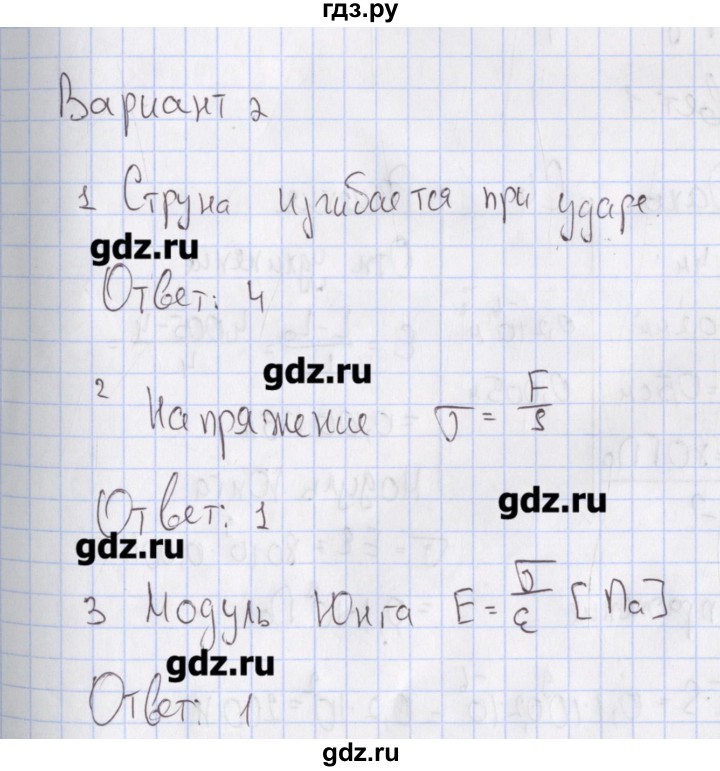 гдз.ру
Вариант 2
1 Струна изгибается при ударе.
gdz.ru
Ответ: 4
gdz.ru
2 Напряжение σ = F/S
gdz.ru
Ответ: 1
gdz.ru
3 Модуль Юнга E = σ/ε [Па]
gdz.ru
Ответ: 1
gdz.ru